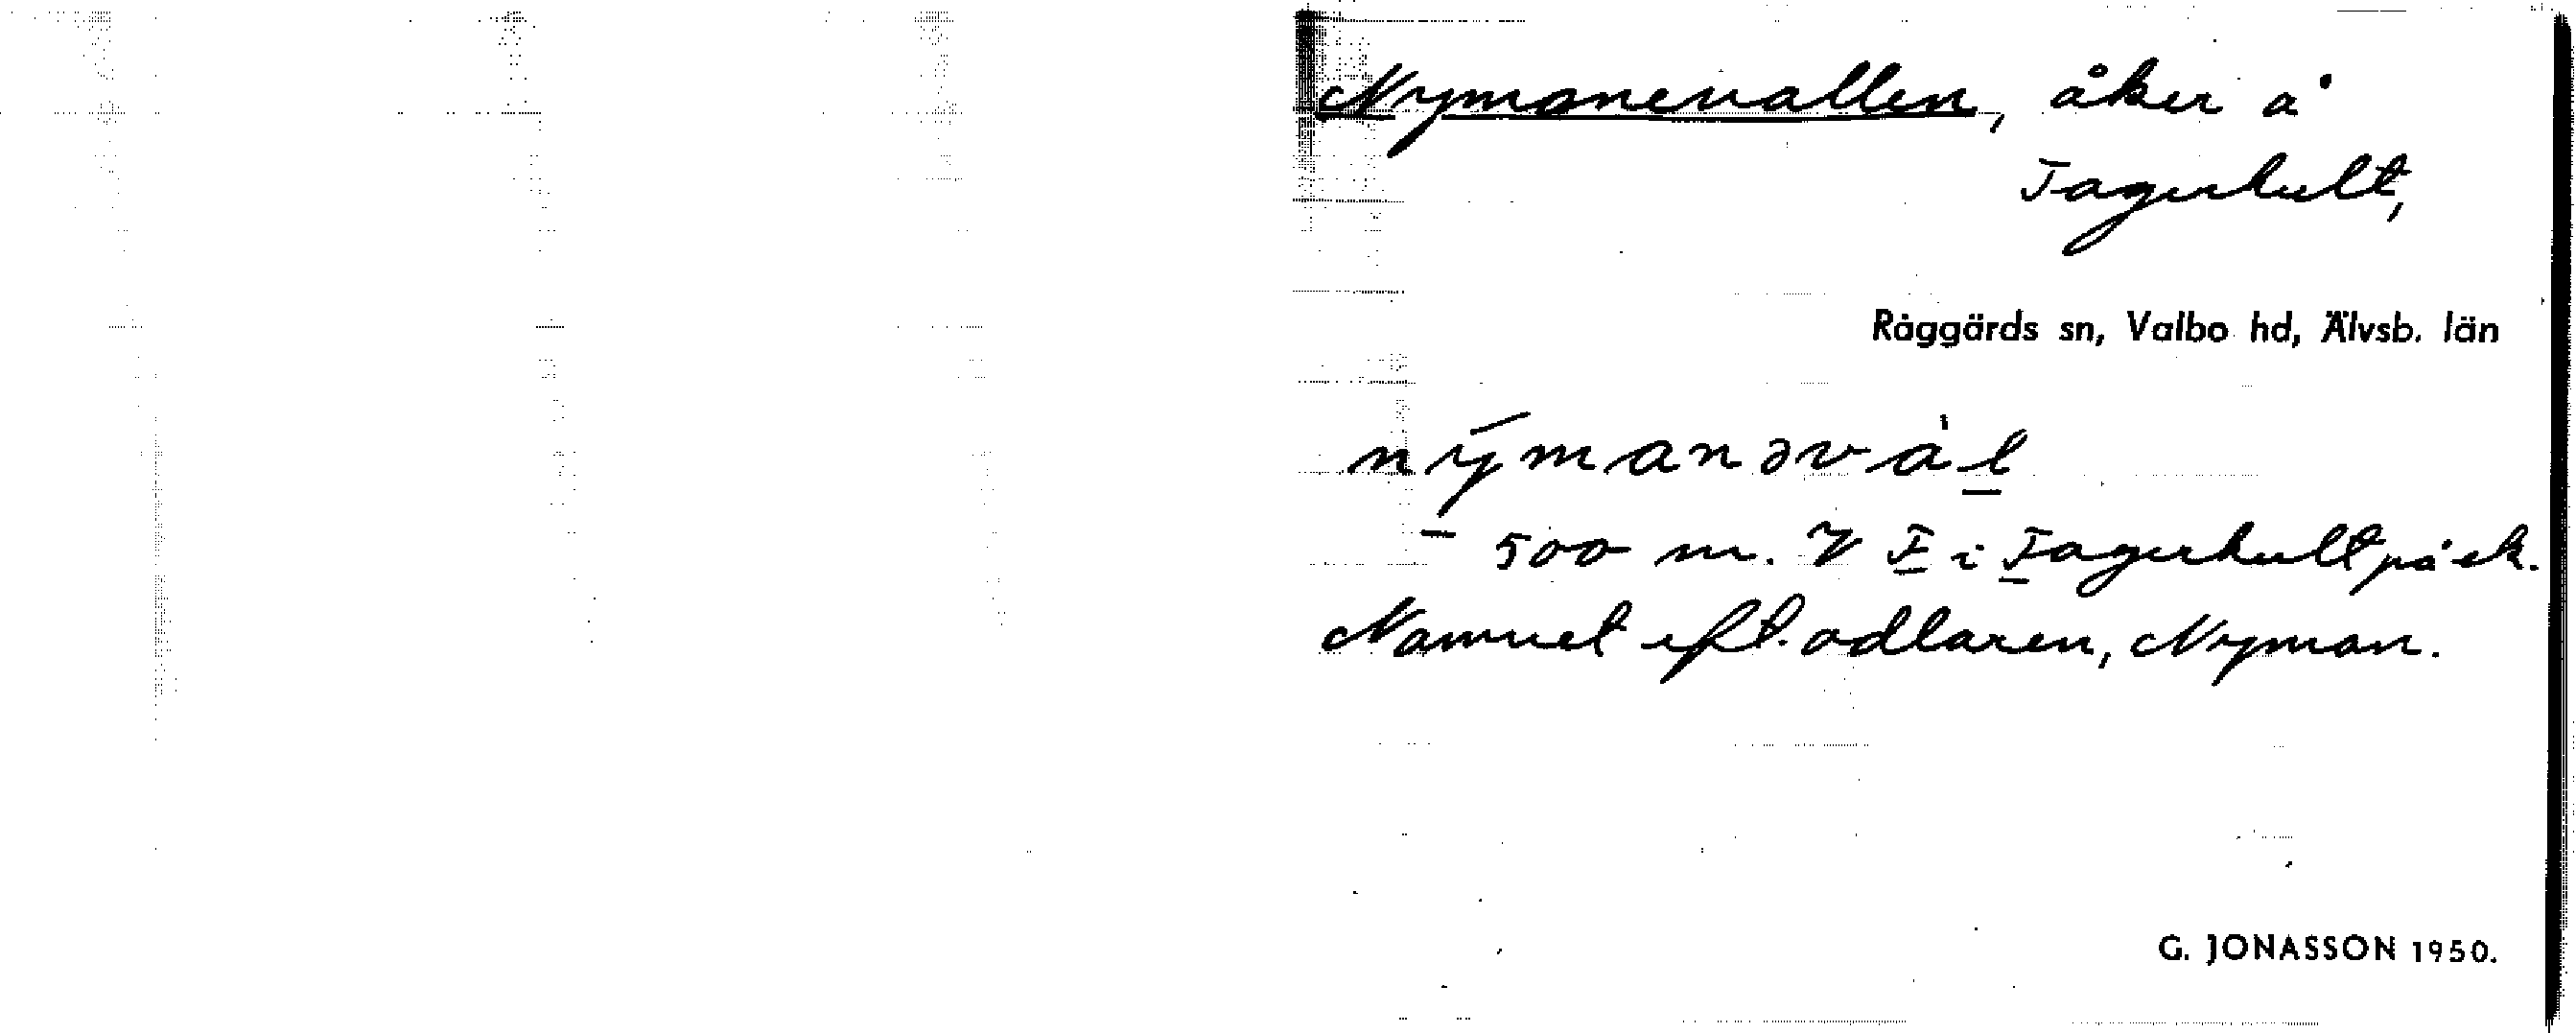 Nymanevallen, åker å
Tagerhult,
Råggärds sn, Valbo hd, Älvsb. län
nýmanəvàl
500 m. V T i Tagerhult på ek.
Namnet eft. odlaren, Nyman.
G. JONASSON 1950.